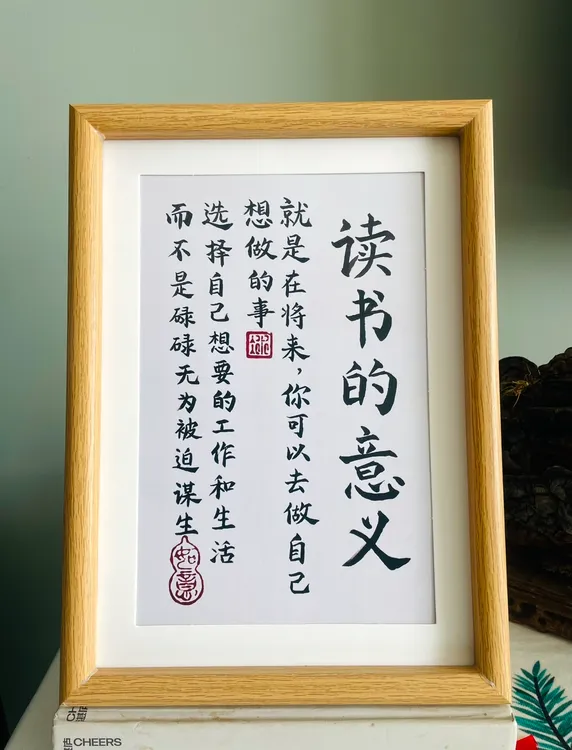 读书的意义
就是在将来，你可以去做自己
想做的事
选择自己想要的工作和生活
而不是碌碌无为被迫谋生
如意
CHEERS